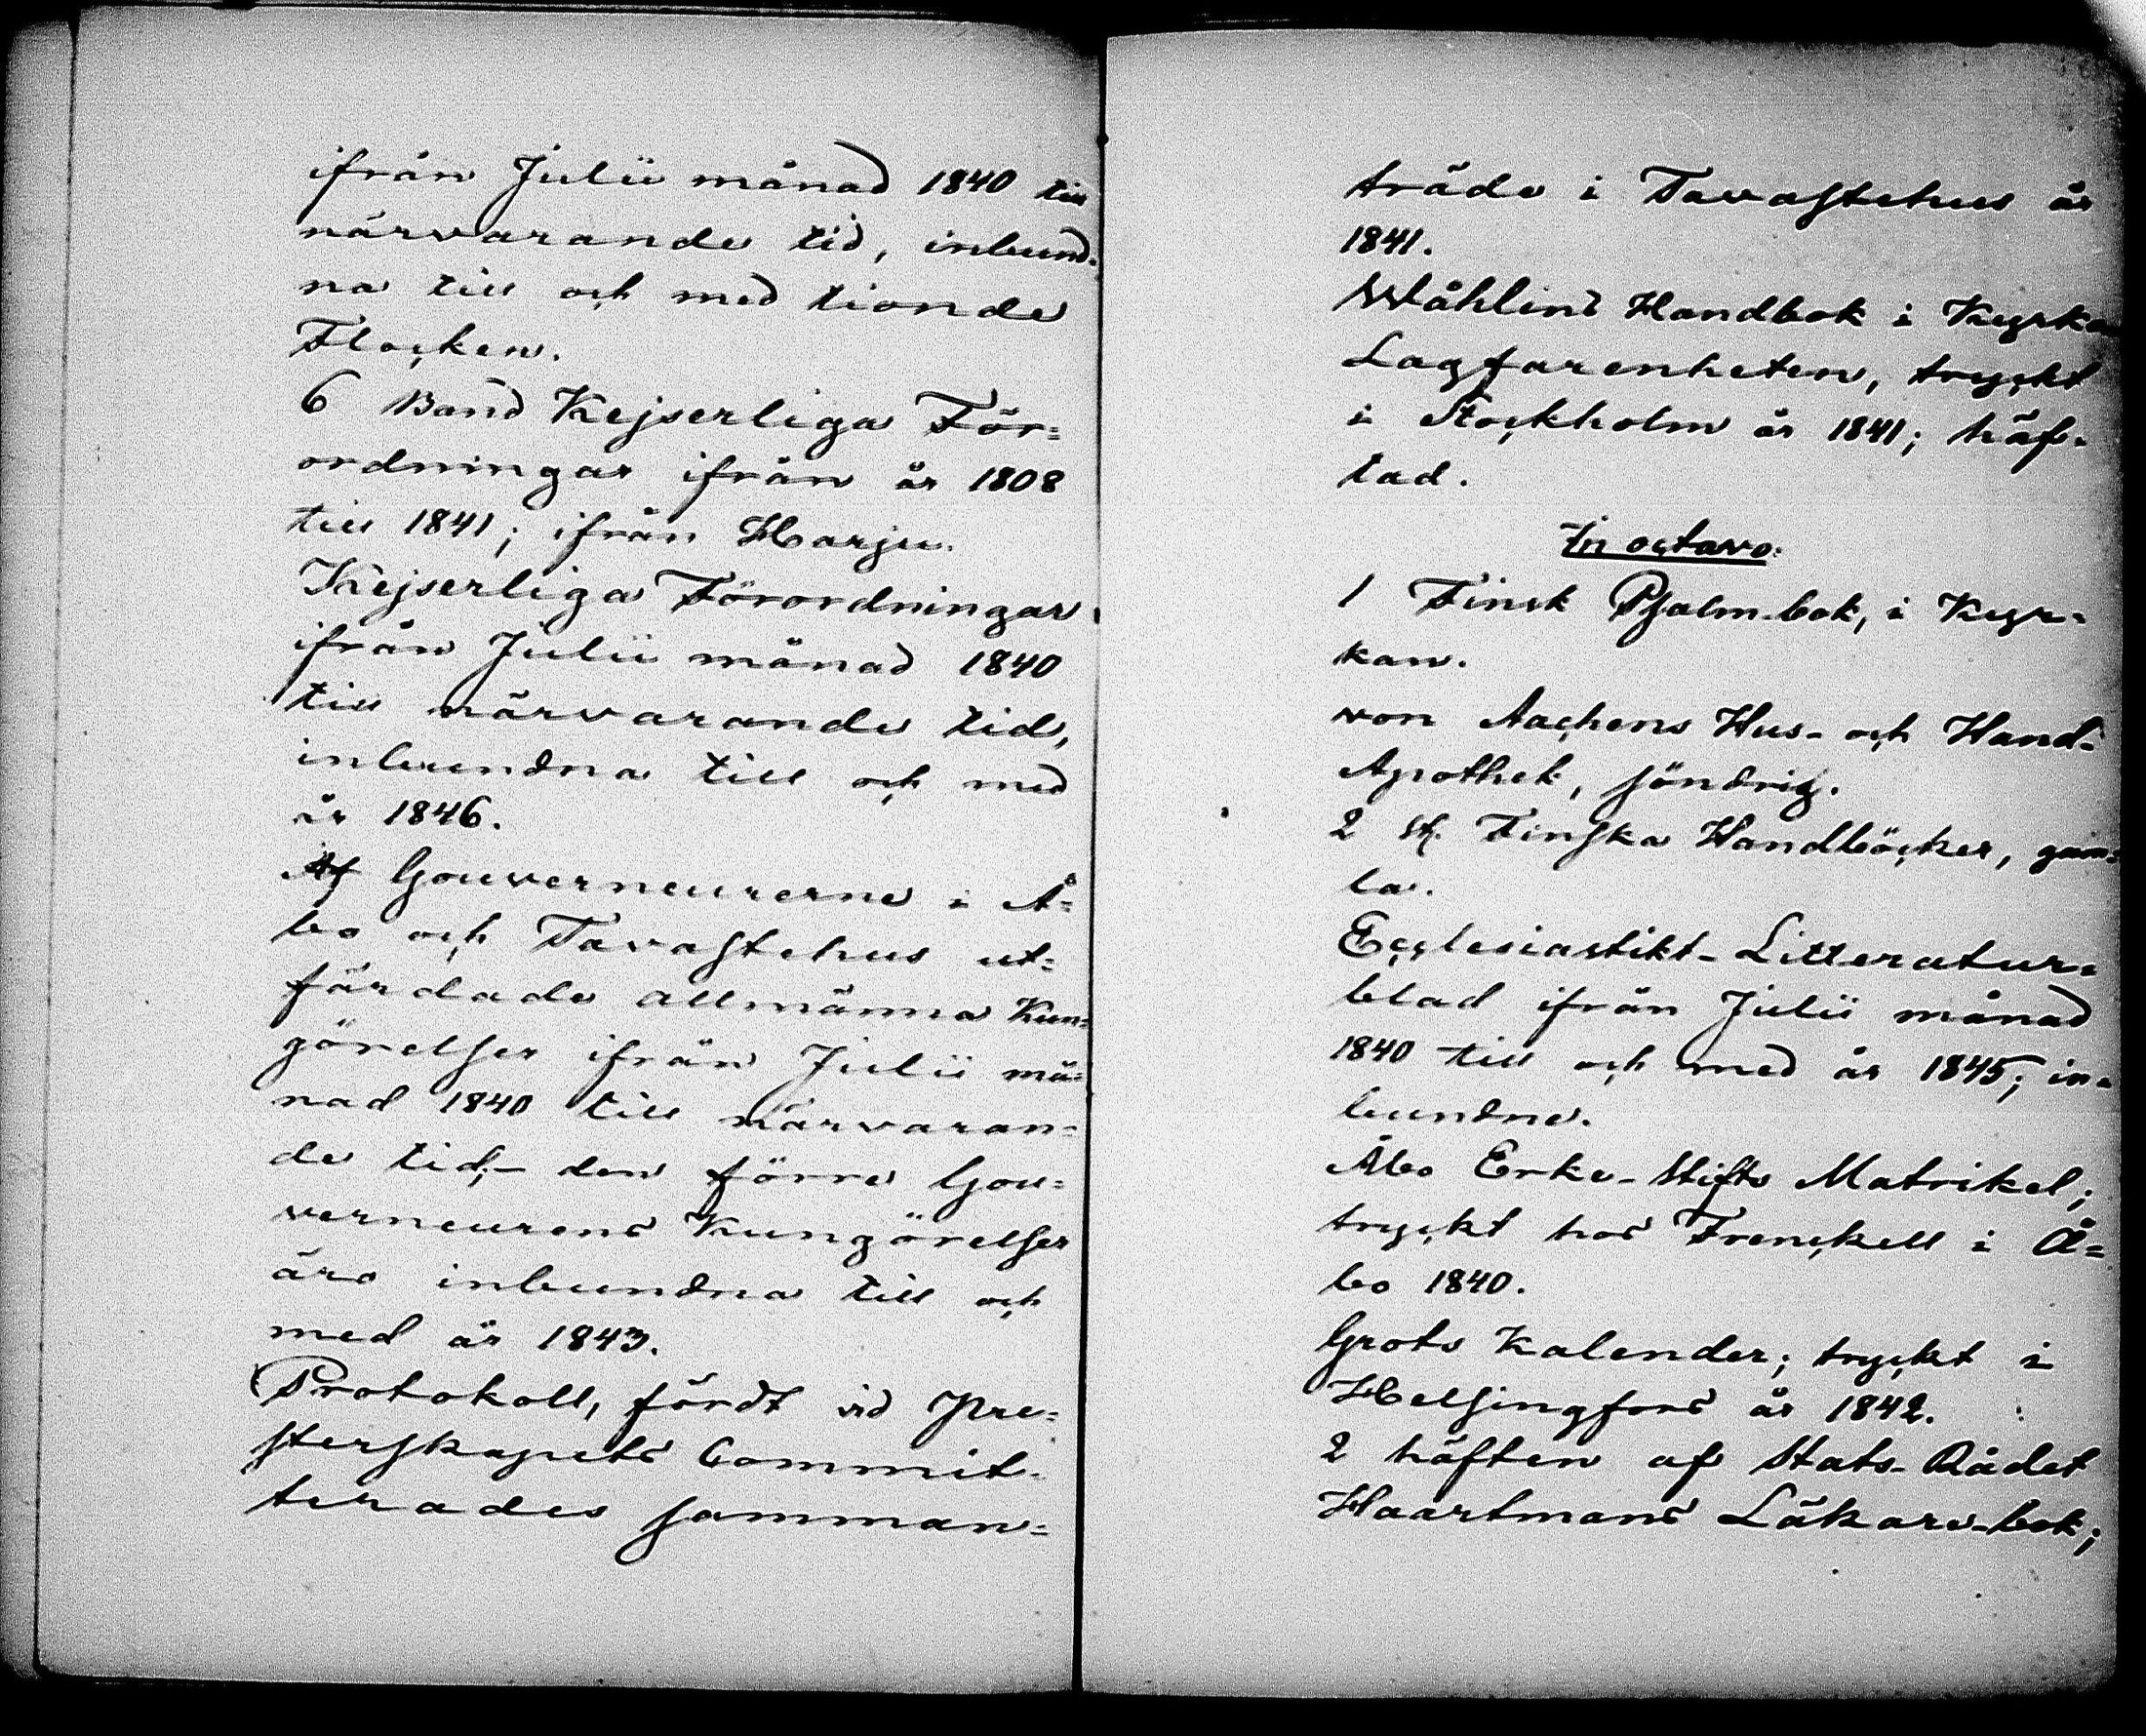 ifrån Julii månad 1840 till
närvarande tid, inbund=
na till och med tionde
Flocken.
6 Band Kejserliga För=
ordningar ifrån år 1808
till 1841; ifrån Harju.
Kejserliga Förordningar
ifrån Julii månad 1840
till närvarande tid,
inbundna till och med
år 1846.
Af Gouverneurerne i Å=
bo och Tavastehus ut=
färdade allmänna Kun=
görelser ifrån Julii må=
nad 1840 till närvaran=
de tid;- den förre Gou=
verneurens Kungörelser
äro inbundna till och
med år 1843.
Protokoll, fördt vid Pre=
sterskapets Commit=
terades samman=
träde i Tavastehus år
1841.
Wåhlins Handbok i Kyrko
Lagfarenheten, tryckt
i Stockholm år 1841; häf=
tad.
In octavo:
1 Finsk Psalm-bok, i Kyr=
kan.
von Aachens Hus- och Hand-
Apothek, söndrig.
2 st. Finska Handböcker, gam=
la.
Ecclesiastikt-Litteratur=
blad ifrån Julii månad
1840 till och med år 1845; in=
bundne.
Åbo Erke-Stifts Matrikel;
tryckt hos Frenckell i Å=
bo 1840.
Grots Kalender; tryckt i
Helsingfors år 1842.
2 häften af Stats-Rådet
Haartmans Läkare-bok;